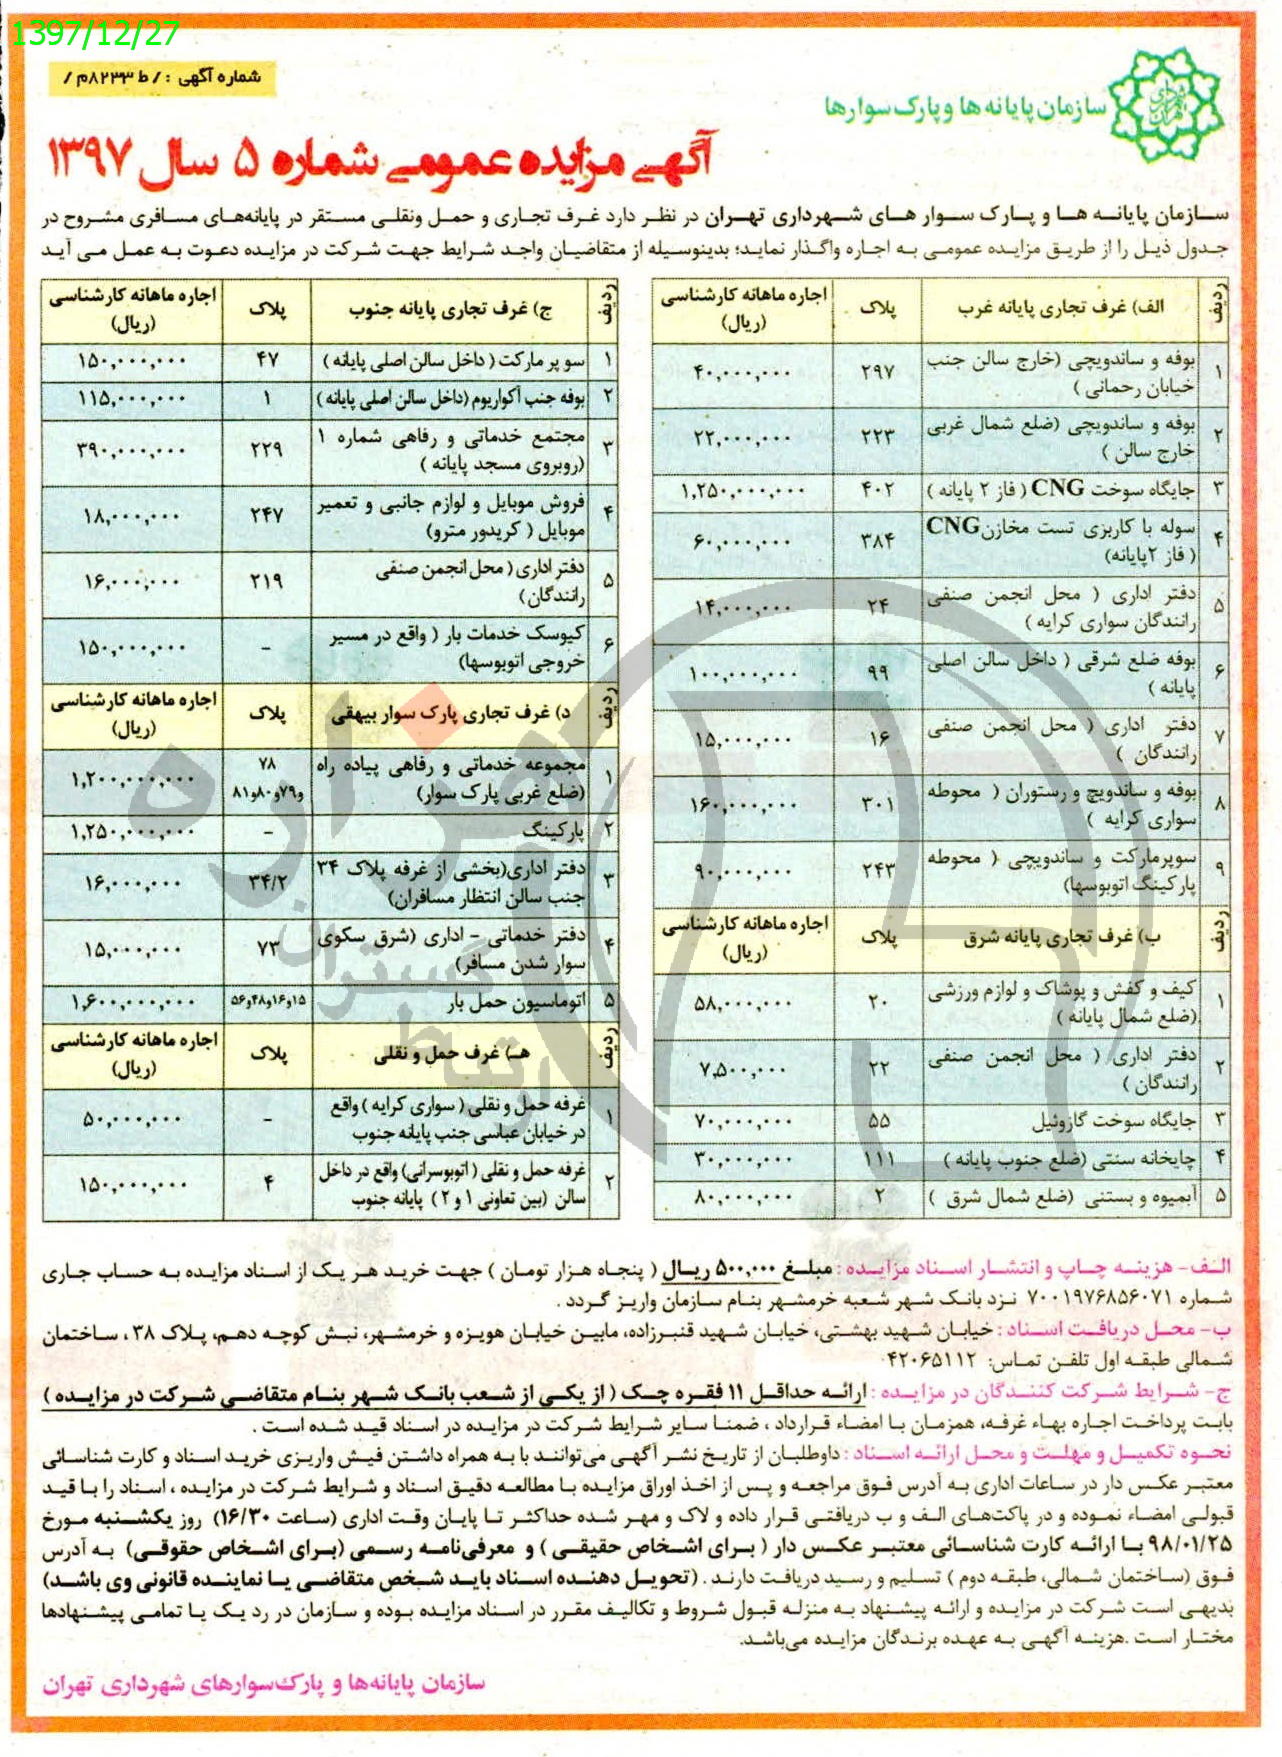 1397/12/27
شماره آگهی : / ط ۸۲۳۳م /
سازمان پایانه ها و پارک سوارها
آگهی مزایده عمومی شماره ۵ سال ۱۳۹۷
سازمان پایانه ها و پارک سوار های شهرداری تهران در نظر دارد غرف تجاری و حمل ونقلی مستقر در پایانه‌های مسافری مشروح در
جدول ذیل را از طریق مزایده عمومی به اجاره واگذار نماید؛ بدینوسیله از متقاضیان واجد شرایط جهت شرکت در مزایده دعوت به عمل می آید
ردیف الف) غرف تجاری پایانه غرب پلاک اجاره ماهانه کارشناسی
(ریال)
۱ بوفه و ساندویچی (خارج سالن جنب ۲۹۷ ۴۰,۰۰۰,۰۰۰
خیابان رحمانی )
۲ بوفه و ساندویچی (ضلع شمال غربی ۲۲۳ ۲۲,۰۰۰,۰۰۰
خارج سالن )
۳ جایگاه سوخت CNG ( فاز ۲ پایانه ) ۴۰۲ ۱,۲۵۰,۰۰۰,۰۰۰
۴ سوله با کاربری تست مخازن CNG ۳۸۴ ۶۰,۰۰۰,۰۰۰
( فاز ۲پایانه)
۵ دفتر اداری ( محل انجمن صنفی ۲۴ ۱۴,۰۰۰,۰۰۰
رانندگان سواری کرایه )
۶ بوفه ضلع شرقی ( داخل سالن اصلی ۹۹ ۱۰۰,۰۰۰,۰۰۰
پایانه )
۷ دفتر اداری ( محل انجمن صنفی ۱۶ ۱۵,۰۰۰,۰۰۰
رانندگان )
۸ بوفه و ساندویچ و رستوران ( محوطه ۳۰۱ ۱۶۰,۰۰۰,۰۰۰
سواری کرایه )
۹ سوپرمارکت و ساندویچی ( محوطه ۲۴۳ ۹۰,۰۰۰,۰۰۰
پارکینگ اتوبوسها)
ردیف ب) غرف تجاری پایانه شرق پلاک اجاره ماهانه کارشناسی
(ریال)
۱ کیف و کفش و پوشاک و لوازم ورزشی ۲۰ ۵۸,۰۰۰,۰۰۰
(ضلع شمال پایانه )
۲ دفتر اداری ( محل انجمن صنفی ۲۲ ۷,۵۰۰,۰۰۰
رانندگان )
۳ جایگاه سوخت گازوئیل ۵۵ ۷۰,۰۰۰,۰۰۰
۴ چایخانه سنتی (ضلع جنوب پایانه ) ۱۱۱ ۳۰,۰۰۰,۰۰۰
۵ آبمیوه و بستنی (ضلع شمال شرق ) ۲ ۸۰,۰۰۰,۰۰۰
ردیف ج) غرف تجاری پایانه جنوب پلاک اجاره ماهانه کارشناسی
(ریال)
۱ سوپر مارکت ( داخل سالن اصلی پایانه ) ۴۷ ۱۵۰,۰۰۰,۰۰۰
۲ بوفه جنب آکواریوم (داخل سالن اصلی پایانه ) ۱ ۱۱۵,۰۰۰,۰۰۰
۳ مجتمع خدماتی و رفاهی شماره ۱ ۲۲۹ ۳۹۰,۰۰۰,۰۰۰
(روبروی مسجد پایانه )
۴ فروش موبایل و لوازم جانبی و تعمیر ۲۴۷ ۱۸,۰۰۰,۰۰۰
موبایل ( کریدور مترو)
۵ دفتر اداری ( محل انجمن صنفی ۲۱۹ ۱۶,۰۰۰,۰۰۰
رانندگان)
۶ کیوسک خدمات بار ( واقع در مسیر - ۱۵۰,۰۰۰,۰۰۰
خروجی اتوبوسها)
ردیف د) غرف تجاری پارک سوار بیهقی پلاک اجاره ماهانه کارشناسی
(ریال)
۱ مجموعه خدماتی و رفاهی پیاده راه ۷۸ ۱,۲۰۰,۰۰۰,۰۰۰
(ضلع غربی پارک سوار) و۷۹و۸۰و۸۱
۲ پارکینگ - ۱,۲۵۰,۰۰۰,۰۰۰
۳ دفتر اداری(بخشی از غرفه پلاک ۳۴ ۳۴/۲ ۱۶,۰۰۰,۰۰۰
جنب سالن انتظار مسافران)
۴ دفتر خدماتی - اداری (شرق سکوی ۷۳ ۱۵,۰۰۰,۰۰۰
سوار شدن مسافر)
۵ اتوماسیون حمل بار ۱۵و۱۶و۴۸و۵۶ ۱,۶۰۰,۰۰۰,۰۰۰
ردیف هـ) غرف حمل و نقلی پلاک اجاره ماهانه کارشناسی
(ریال)
۱ غرفه حمل و نقلی ( سواری کرایه ) واقع - ۵۰,۰۰۰,۰۰۰
در خیابان عباسی جنب پایانه جنوب
۲ غرفه حمل و نقلی ( اتوبوسرانی) واقع در داخل ۴ ۱۵۰,۰۰۰,۰۰۰
سالن (بین تعاونی ۱ و ۲ ) پایانه جنوب
الف- هزینه چاپ و انتشار اسناد مزایده : مبلغ ۵۰۰,۰۰۰ ریال ( پنجاه هزار تومان ) جهت خرید هر یک از اسناد مزایده به حساب جاری
شماره ۷۰۰۱۹۷۶۸۵۶۰۷۱ نزد بانک شهر شعبه خرمشهر بنام سازمان واریز گردد .
ب- محل دریافت اسناد : خیابان شهید بهشتی، خیابان شهید قنبرزاده، مابین خیابان هویزه و خرمشهر، نبش کوچه دهم، پلاک ۳۸ ، ساختمان
شمالی طبقه اول تلفن تماس: ۴۲۰۶۵۱۱۲
ج- شرایط شرکت کنندگان در مزایده : ارائه حداقل ۱۱ فقره چک ( از یکی از شعب بانک شهر بنام متقاضی شرکت در مزایده )
بابت پرداخت اجاره بهاء غرفه، همزمان با امضاء قرارداد ، ضمنا سایر شرایط شرکت در مزایده در اسناد قید شده است .
نحوه تکمیل و مهلت و محل ارائه اسناد : داوطلبان از تاریخ نشر آگهی می‌توانند با به همراه داشتن فیش واریزی خرید اسناد و کارت شناسائی
معتبر عکس دار در ساعات اداری به آدرس فوق مراجعه و پس از اخذ اوراق مزایده با مطالعه دقیق اسناد و شرایط شرکت در مزایده ، اسناد را با قید
قبولی امضاء نموده و در پاکت‌های الف و ب دریافتی قرار داده و لاک و مهر شده حداکثر تا پایان وقت اداری (ساعت ۱۶/۳۰) روز یکشنبه مورخ
۹۸/۰۱/۲۵ با ارائه کارت شناسائی معتبر عکس دار ( برای اشخاص حقیقی ) و معرفی‌نامه رسمی (برای اشخاص حقوقی) به آدرس
فوق (ساختمان شمالی، طبقه دوم ) تسلیم و رسید دریافت دارند . (تحویل دهنده اسناد باید شخص متقاضی یا نماینده قانونی وی باشد)
بدیهی است شرکت در مزایده و ارائه پیشنهاد به منزله قبول شروط و تکالیف مقرر در اسناد مزایده بوده و سازمان در رد یک یا تمامی پیشنهادها
مختار است .هزینه آگهی به عهده برندگان مزایده می‌باشد.
سازمان پایانه‌ها و پارک‌سوارهای شهرداری تهران